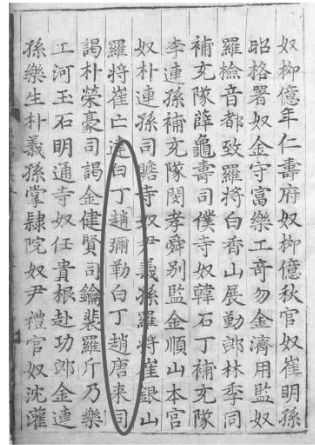 奴柳億年仁壽府奴柳億秋官奴崔明孫
昭格署奴金守富樂工奇勿金濟用監奴
羅檢音都致羅將白香山展勤郎林季同
補充隊薛龜壽司僕寺奴韓石丁補充隊
李連孫補充隊閔孝舜別監金順山本宮
奴朴連孫司贍寺奴尹義孫羅將崔銀山
羅將崔亡達白丁趙彌勒白丁趙唐來司
謁朴榮豪司謁金健賢司鑰裴羅斤乃樂
工河玉石明通寺奴任貴根赴功郎金連
孫樂生朴義孫掌隷院奴尹禮官奴沈灌